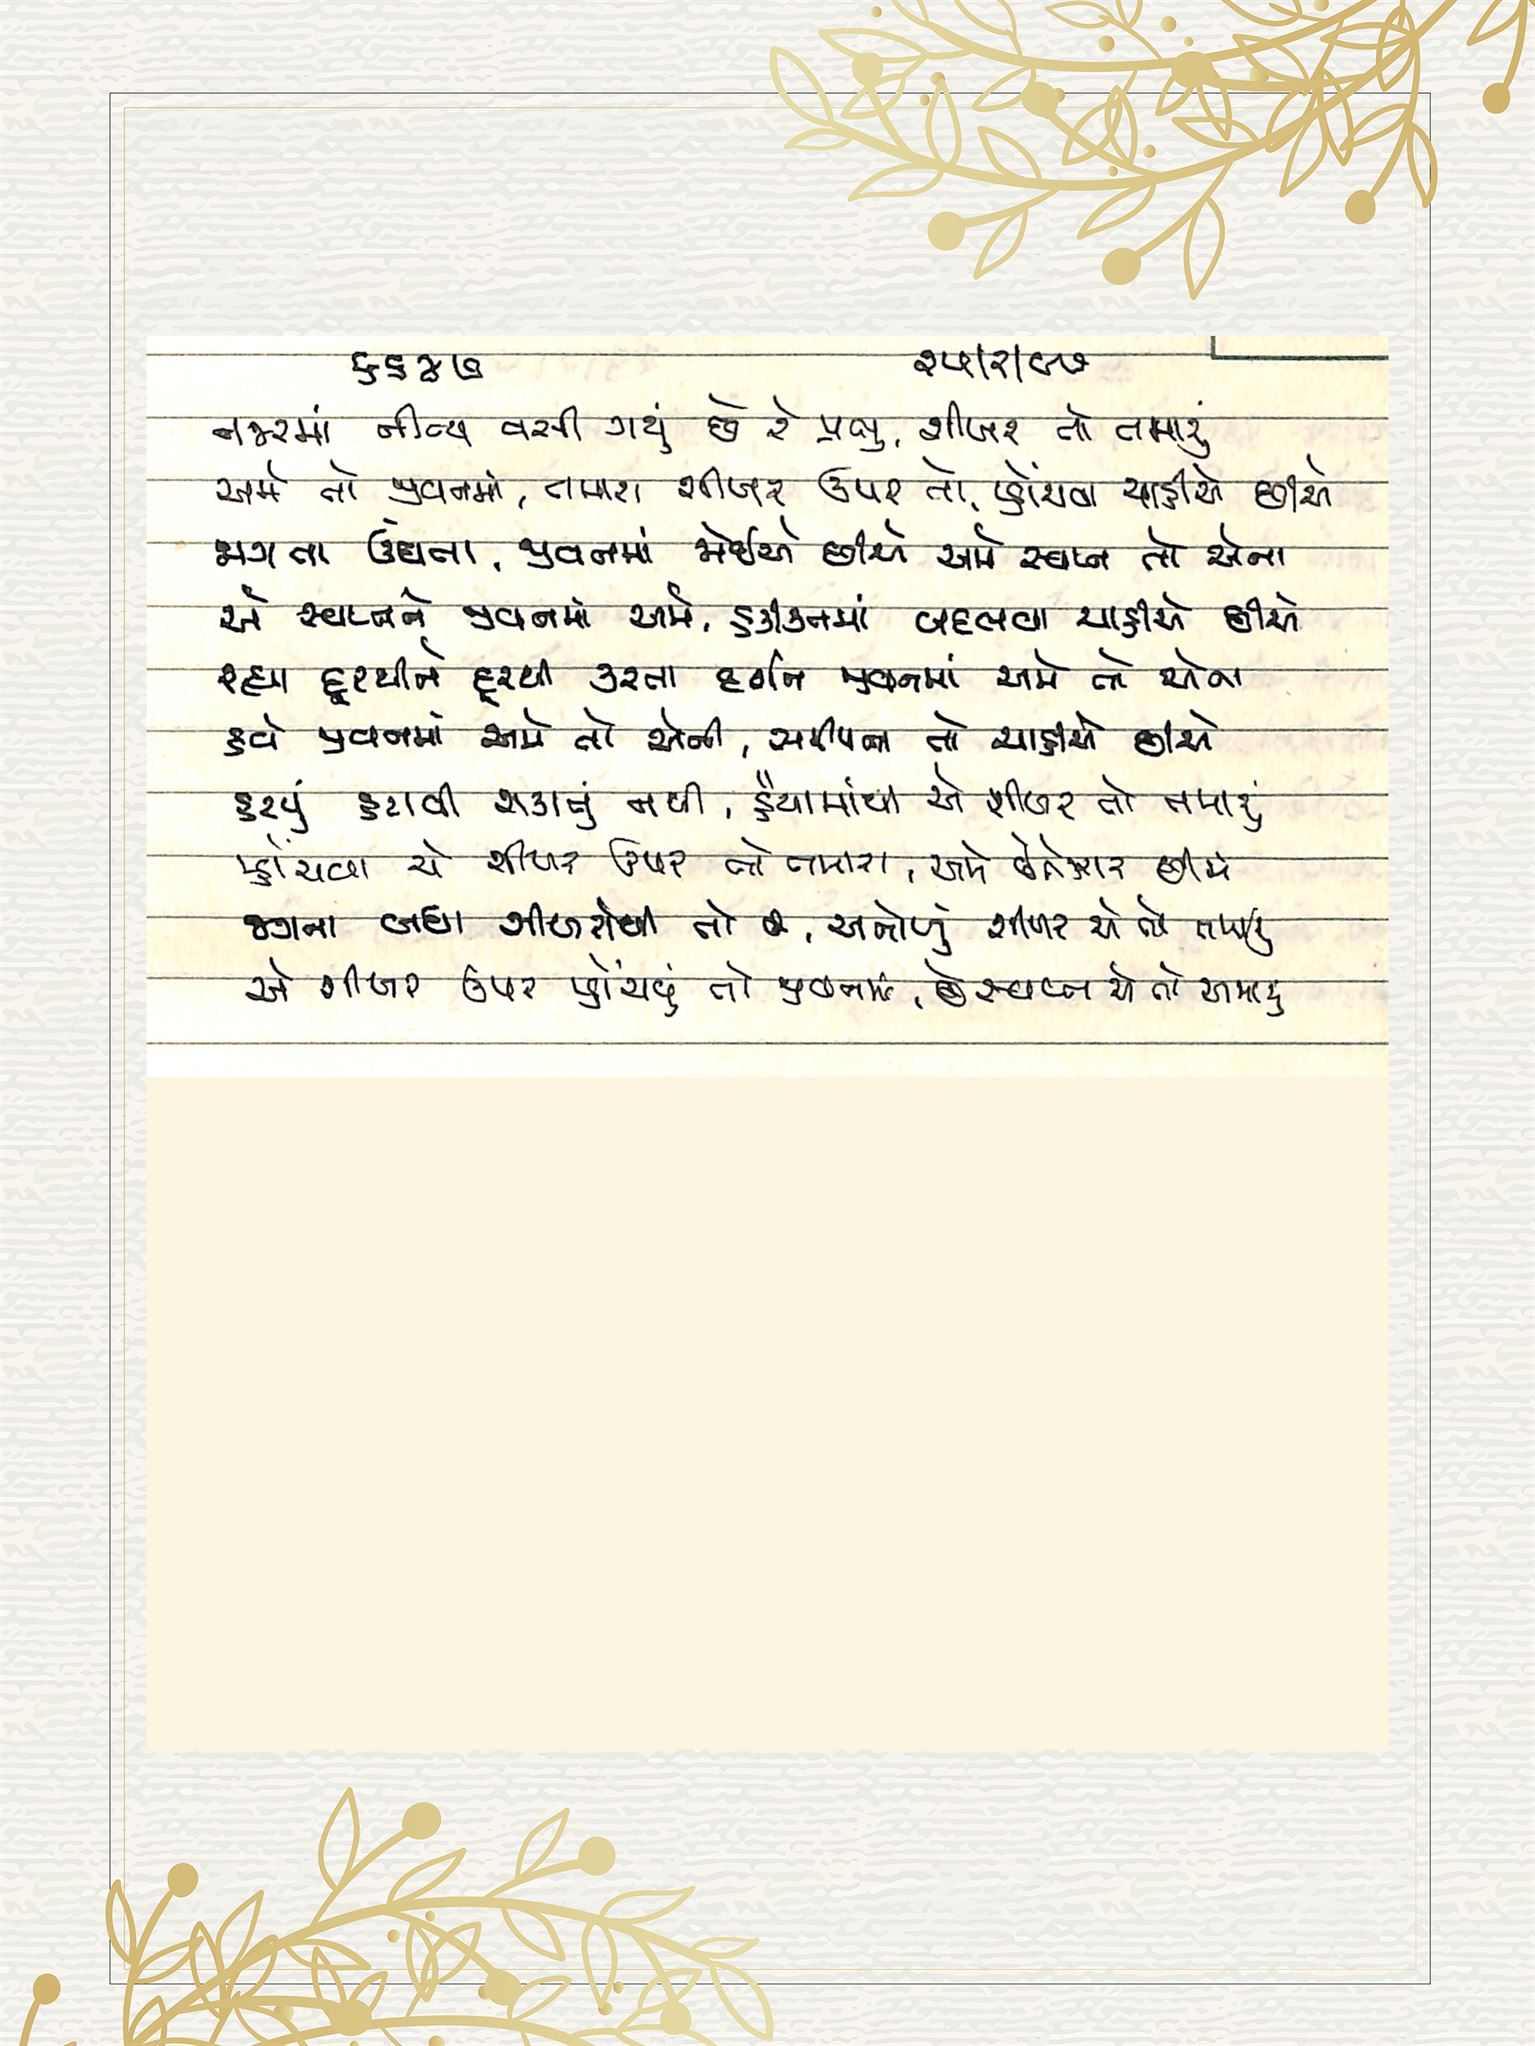 ૬૬૪૭ ૨૫/૨/૯૭
નજરમાં નીત્ય વસી ગયું છે રે પ્રભુ, શીખર તો તમારું
અમે તો જીવનમાં, તમારા શીખર ઉપર તો, પ્હોંચવા ચાહીએ છીએ
જાગતા ઉંઘતા, જીવનમાં જોઈએ છીએ અમે સ્વપ્ન તો એના
એ સ્વપ્નને જીવનમાં અમે, હકીકતમાં બદલવા ચાહીએ છીએ
રહ્યા દૂરથીને દૂરથી કરતા દર્શન જીવનમાં અમે તો એના
હવે જીવનમાં અમે તો એની, સમીપતા તો ચાહીએ છીએ
હટયું હટાવી શકાતું નથી, હૈયામાંથી એ શીખર તો તમારું
પ્હોંચવા એ શીખર ઉપર તો તમારા, અમે બેકરાર છીએ
જગના બધા શીખરોથી તો, અનોખું શીખર એ તો તમારું
એ શીખર ઉપર પ્હોંચવું તો જીવનમાં, છે સ્વપ્ન એ તો અમારું